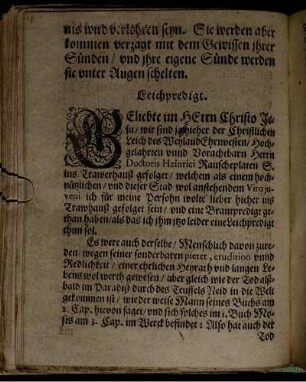 nis wird verlohren seyn. Sie werden aber
kommen verzagt mit dem Gewissen jhrer
Sünden / vnd jhre eigene Sünde werden
sie vnter Augen schelten.
Leichpredigt.
GEliebte im HErrn Christo Je-
su / wir sind jgihier der Christlichen
Leich des Weyland Ehrnvesten / Hoch-
gelahrten vnnd Vorachtbarn Herrn
Doctoris Heinrici Rauscheplaten S.
ins Trawerhauß gefolget / welchem als einem hoch-
nützlichen / vnd dieser Stad wol anstehendem Viro ju-
veni ich für meine Persohn wolte lieber hicher ins
Trawhauß gefolget sein / vnd eine Brautpredigt ge-
than haben / als das ich jhm jtzo leider eine Leichpredigt
thun sol.
Es were auch derselbe / Menschlich davon zure-
den / wegen seiner sonderbaren pietet, erudition vnnd
Redlichkeit / einer ehrlichen Heyrath vnd langen Le-
bens wol werth gewesen / aber gleich wie der Tod alß-
bald im Paradiß durch des Teuffels Neid in die Welt
gekommen ist / wie der weise Mann seines Buchs am
2. Cap. hievon saget / vnd sich solches im 1. Buch Mo-
sis am 3. Cap. im Werck befindet: Also hat auch der
Tod